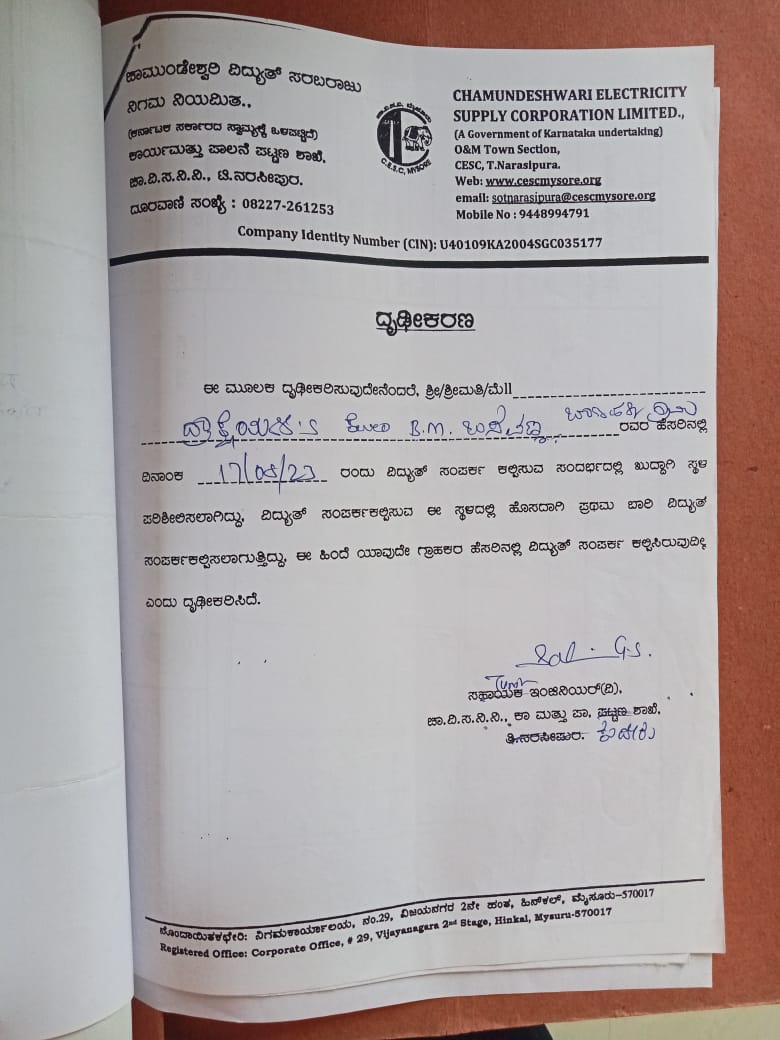 ಚಾಮುಂಡೇಶ್ವರಿ ವಿದ್ಯುತ್ ಸರಬರಾಜು
ನಿಗಮ ನಿಯಮಿತ.,
(ಕರ್ನಾಟಕ ಸರ್ಕಾರದ ಸ್ವಾಮ್ಯಕ್ಕೆ ಒಳಪಟ್ಟಿದೆ)
ಕಾರ್ಯಮತ್ತು ಪಾಲನೆ ಪಟ್ಟಣ ಶಾಖೆ,
ಚಾ.ವಿ.ಸ.ನಿ.ನಿ., ಟಿ.ನರಸೀಪುರ.
ದೂರವಾಣಿ ಸಂಖ್ಯೆ : 08227-261253
C.E.S.C, MYSORE
CHAMUNDESHWARI ELECTRICITY
SUPPLY CORPORATION LIMITED.,
(A Government of Karnataka undertaking)
O&M Town Section,
CESC, T.Narasipura.
Web: www.cescmysore.org
email: sotnarasipura@cescmysore.org
Mobile No : 9448994791
Company Identity Number (CIN): U40109KA2004SGC035177
ದೃಢೀಕರಣ
ಈ ಮೂಲಕ ದೃಢೀಕರಿಸುವುದೇನೆಂದರೆ, ಶ್ರೀ/ಶ್ರೀಮತಿ/ಮೆ||
B.M. ರವರ ಹೆಸರಿನಲ್ಲಿ
ದಿನಾಂಕ 17/08/23 ರಂದು ವಿದ್ಯುತ್ ಸಂಪರ್ಕ ಕಲ್ಪಿಸುವ ಸಂದರ್ಭದಲ್ಲಿ ಖುದ್ದಾಗಿ ಸ್ಥಳ
ಪರಿಶೀಲಿಸಲಾಗಿದ್ದು, ವಿದ್ಯುತ್ ಸಂಪರ್ಕಕಲ್ಪಿಸುವ ಈ ಸ್ಥಳದಲ್ಲಿ ಹೊಸದಾಗಿ ಪ್ರಥಮ ಬಾರಿ ವಿದ್ಯುತ್
ಸಂಪರ್ಕಕಲ್ಪಿಸಲಾಗುತ್ತಿದ್ದು, ಈ ಹಿಂದೆ ಯಾವುದೇ ಗ್ರಾಹಕರ ಹೆಸರಿನಲ್ಲಿ ವಿದ್ಯುತ್ ಸಂಪರ್ಕ
ಎಂದು ದೃಢೀಕರಿಸಿದೆ.
ಸಹಾಯಕ ಇಂಜಿನಿಯರ್(ವಿ),
ಚಾ.ವಿ.ಸ.ನಿ.ನಿ., ಕಾ ಮತ್ತು ಪಾ, ಪಟ್ಟಣ ಶಾಖೆ,
ತಿ.ನರಸೀಪುರ.
ನೊಂದಾಯಿತಕಛೇರಿ: ನಿಗಮಕಾರ್ಯಾಲಯ, ನಂ.29, ವಿಜಯನಗರ 2ನೇ ಹಂತ, ಹಿನ್‌ಕಲ್, ಮೈಸೂರು-570017
Registered Office: Corporate Office, # 29, Vijayanagara 2nd Stage, Hinkal, Mysuru-570017